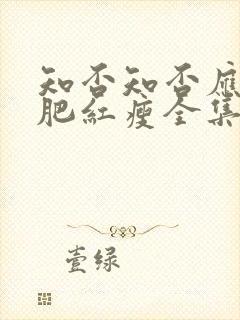 知否知否應
肥紅瘦全集
壹绿